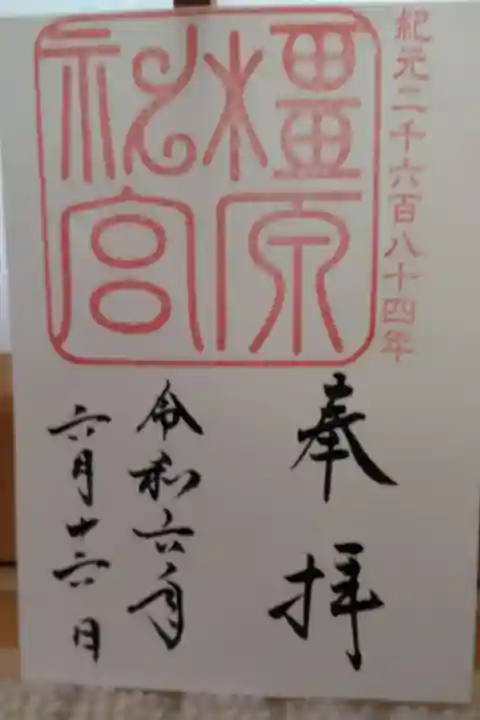 紀元二千六百八十四年
橿原
神宮
奉拝
令和六年
六月十六日